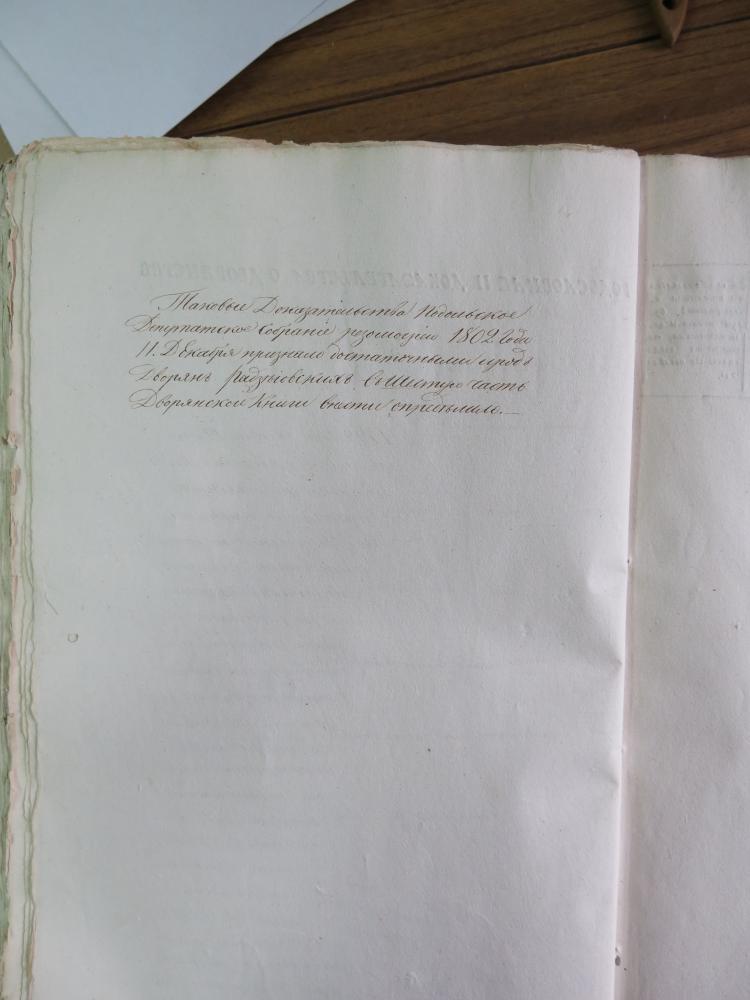 Таковые Доказательства Подольское
Депутатское Собрание резолюциею 1802 года
11. Декабря признало достаточными и родъ
Дворянъ Радзѣіовскихъ въ Шестую Часть
Дворянской Книги внести опредѣлило.